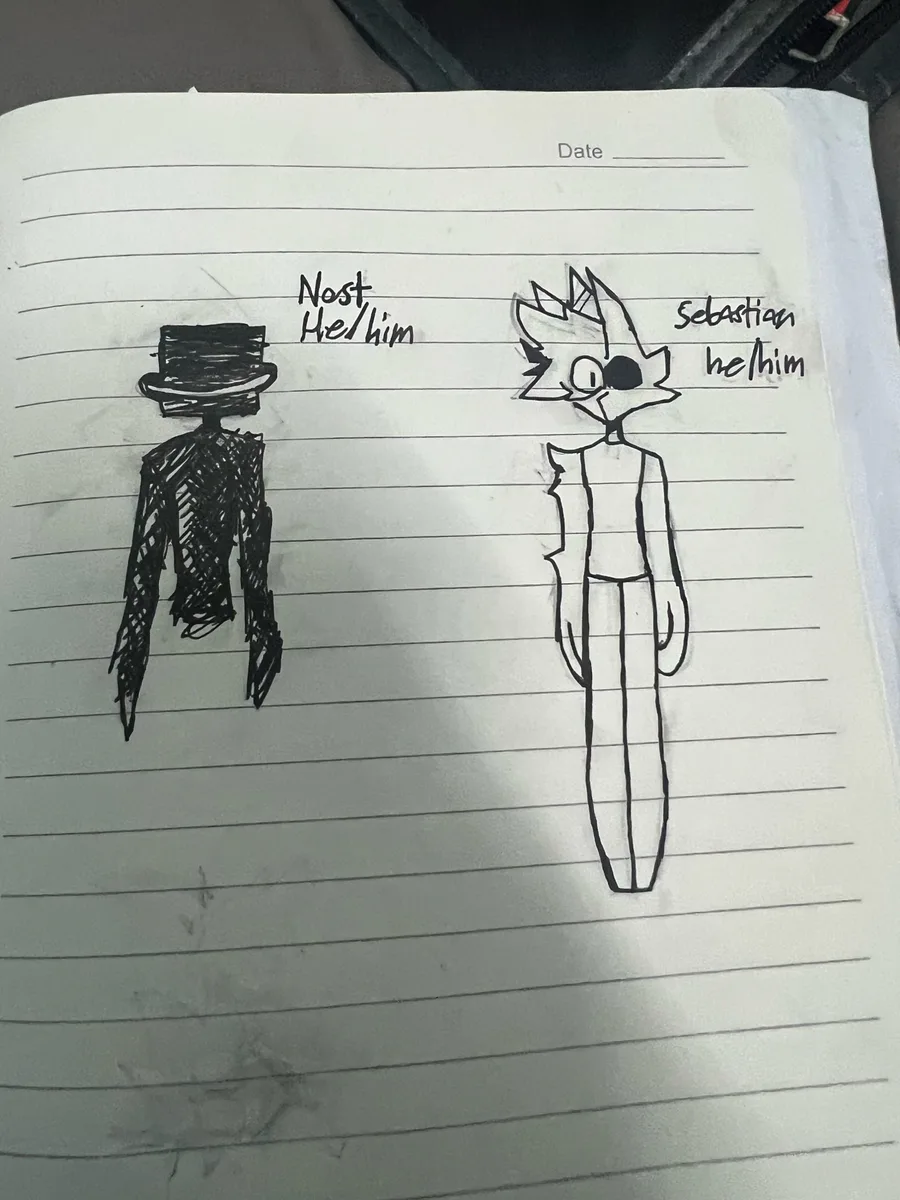 Date
Nost
He/him
Sebastian
he/him